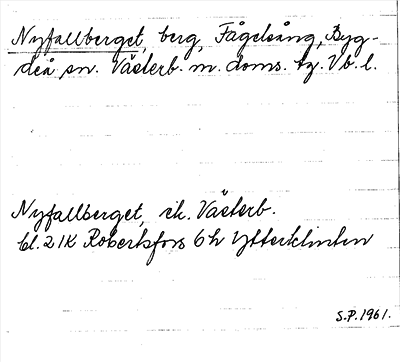 Nyfallberget, berg, Fågelsång, Byg-
deå sn. Västerb. m. doms. tg. Vb. l.
Nyfallberget, ek. Västerb.
bl. 21K Robertsfors 6 h Ytterklinten
S.P. 1961.